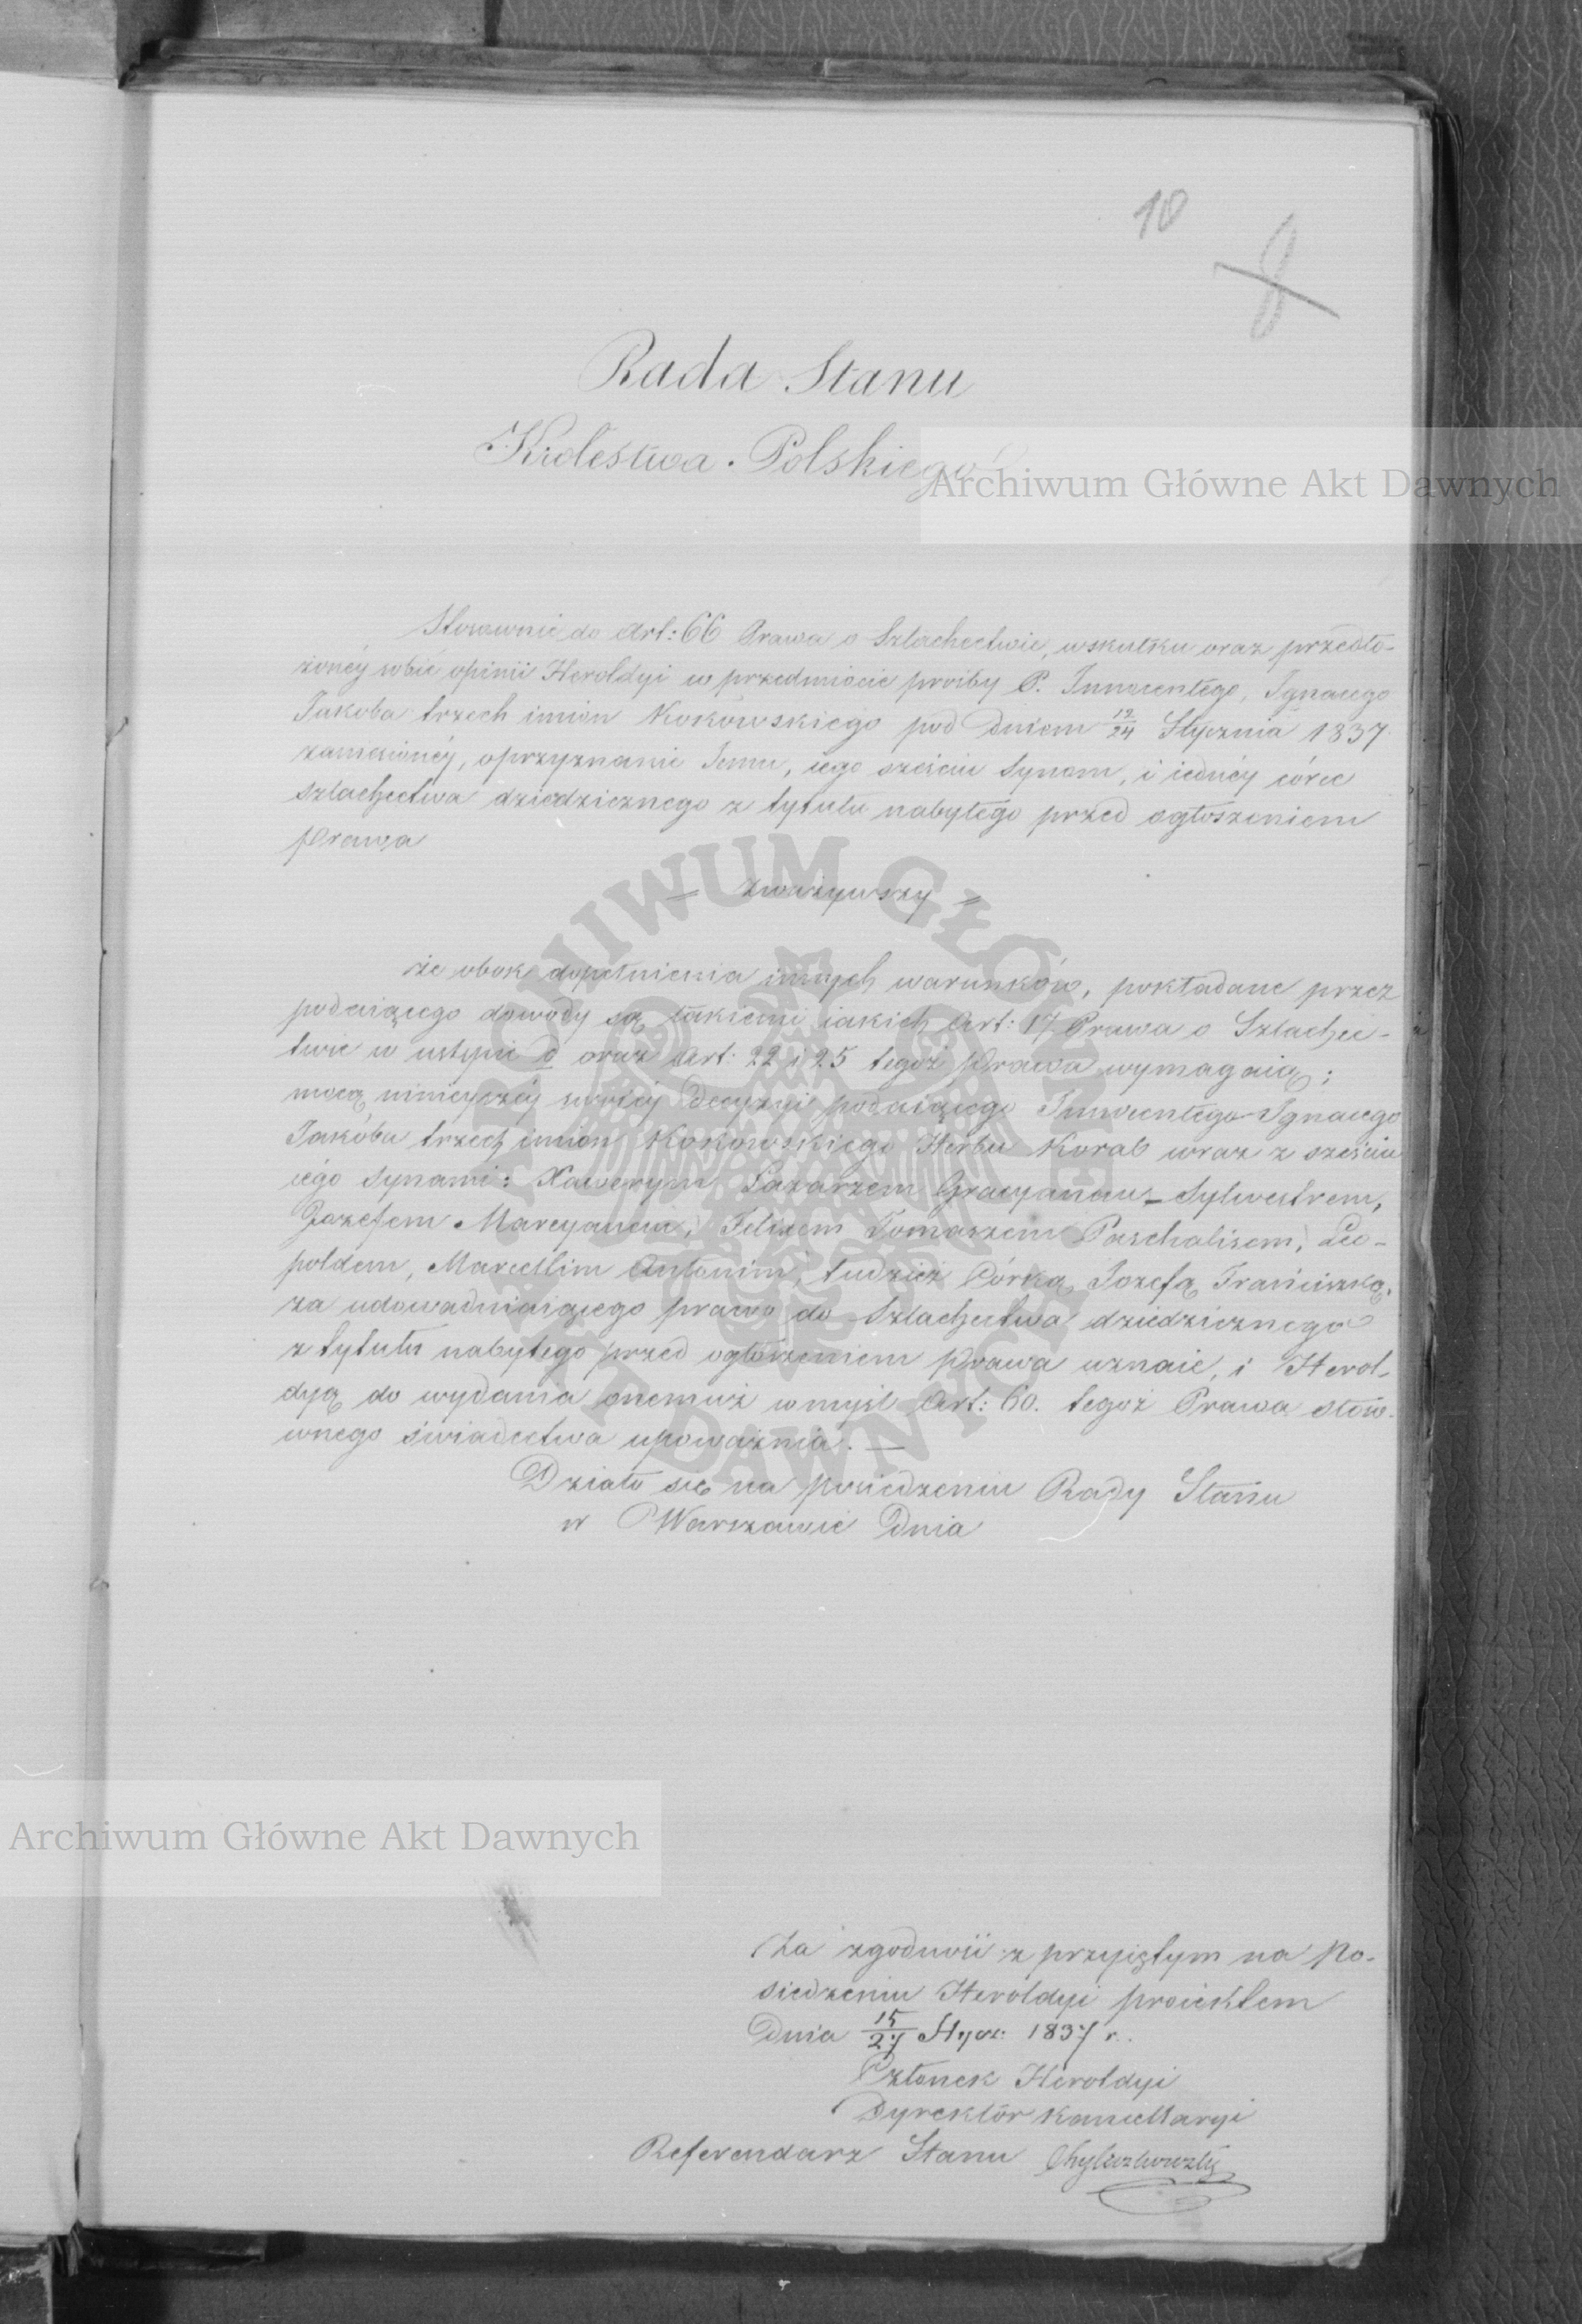 10
8
Rada Stanu
Królestwa Polskiego
Stosownie do Art: 66 Prawa o Szlachectwie, w skutku oraz przedło-
żonéy sobie opinii Heroldyi w przedmiocie prośby P. Innocentego, Ignacego
Jakóba trzech imion Kokowskiego pod dniem 12/24 Stycznia 1837
zaniesionéy, o przyznanie Jemu, iego sześciu Synom, i iednéy córce
szlachectwa dziedzicznego z tytułu nabytego przed ogłoszeniem
prawa
= zważywszy =
że obok dopełnienia innych warunków, pokładane przez
podaiącego dowody są takiemi iakich Art: 17 Prawa o Szlachec-
twie w ustępie d oraz Art: 22 i 25 tegoż Prawa wymagaią;
mocą ninieyszéy swoiéy Decyzyi podaiącego Innocentego Ignacego
Jakóba trzech imion Kokowskiego Herbu Korab wraz z sześciu
iego synami: Xawerym Łazarzem Gracyanem – Sylwestrem,
Józefem Marcyanem, Felixem Tomaszem Paschalisem, Leo-
poldem, Marcellim Antonim, tudzież Córką Józefą Franciszką,
za udowadniaiącego prawo do Szlachectwa dziedzicznego
z tytułu nabytego przed ogłoszeniem Prawa uznaie, i Herol-
dyą do wydania onemuż w myśl Art: 60. tegoż Prawa stoso-
wnego świadectwa upoważnia. —
Działo się na posiedzeniu Rady Stanu
w Warszawie Dnia
Za zgodność z przyiętym na Po-
siedzeniu Heroldyi proiektem
Dnia 15/27 Stycz: 1837 r.
Członek Heroldyi
Dyrektor Kancellaryi
Referendarz Stanu
Archiwum Główne Akt Dawnych
Archiwum Główne Akt Dawnych
ARCHIWUM GŁÓWNE AKT DAWNYCH